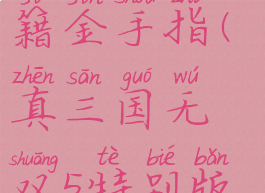 籍金手指(
zhēn sān guó wú
真三国无
shuāng tè bié bǎn
双5特别版